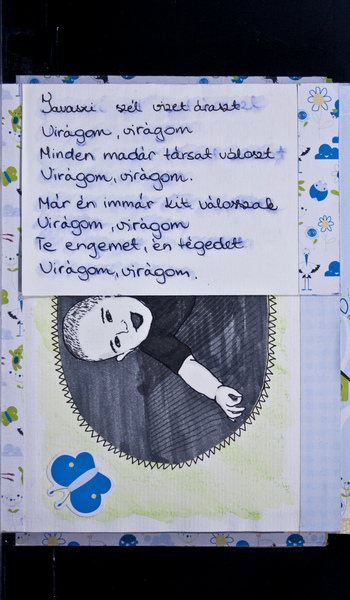 Tavaszi szél vizet áraszt
Virágom, virágom
Minden madár társat választ
Virágom, virágom.
Már én immár kit válasszak
Virágom, virágom
Te engemet, én tégedet
Virágom, virágom.